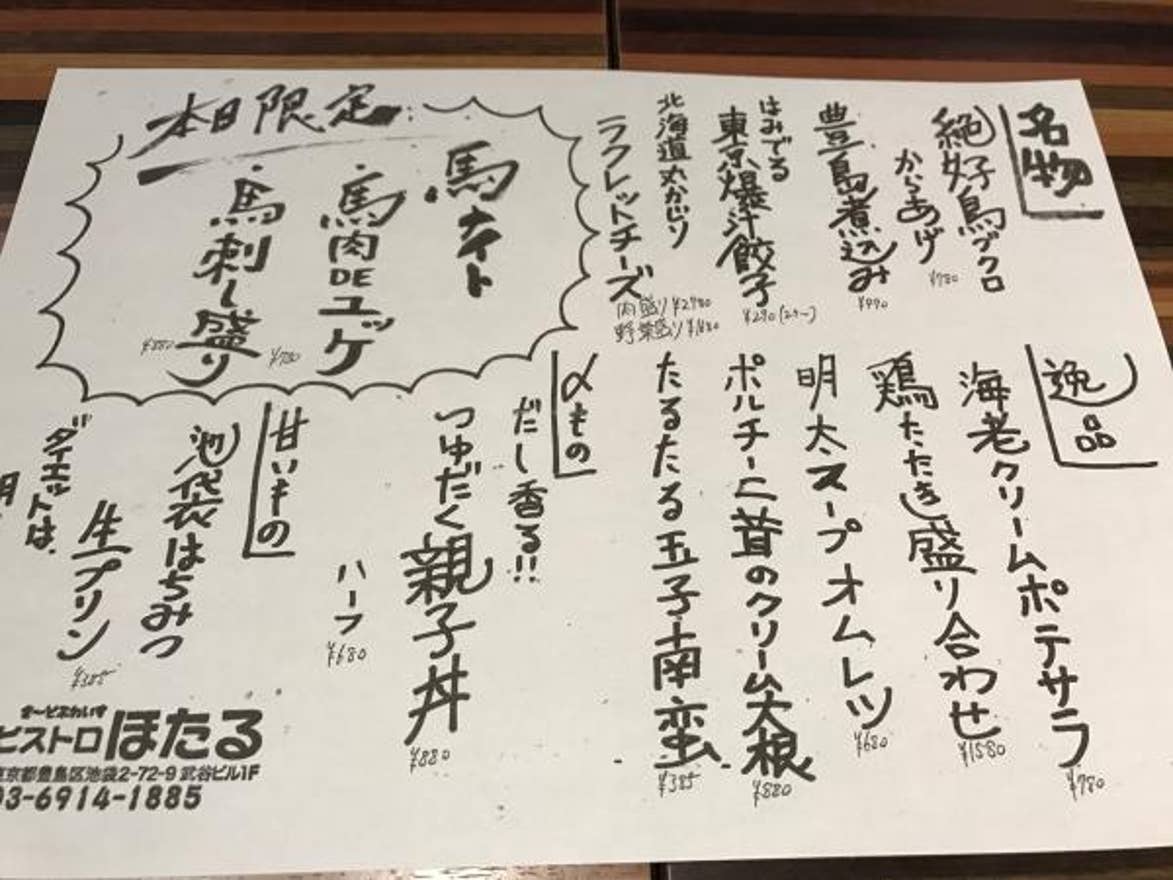 名物
絶好鳥ブクロ
からあげ
¥780
豊島煮込み
¥490
はみでる
東京爆汁餃子
¥290(2ケ〜)
北海道丸かじり
ラクレットチーズ
肉盛り ¥2980
野菜盛り ¥1680
本日限定
馬ナイト
・馬肉DEユッケ
¥780
・馬刺し盛り
¥880
逸品
海老クリームポテサラ
¥780
鶏たたき盛り合わせ
¥1580
明太スープオムレツ
¥680
ポルチーニ茸のクリーム大根
¥880
たるたる玉子南蛮
¥385
〆もの
だし香る!!
つゆだく親子丼
¥880
ハーフ
¥680
甘いもの
池袋はちみつ
生プリン
¥385
ダイエットは、
ビストロほたる
東京都豊島区池袋2-72-9 武谷ビル1F
03-6914-1885